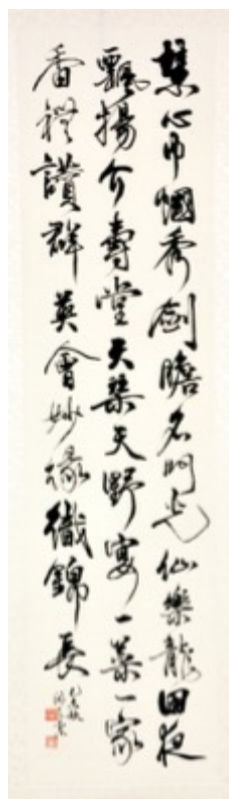 慧心巾幗秀劍膽名門光仙樂龍田夜
飄揚介壽堂天天野宴一菜一家
香禮讚群英會妙緣織錦長